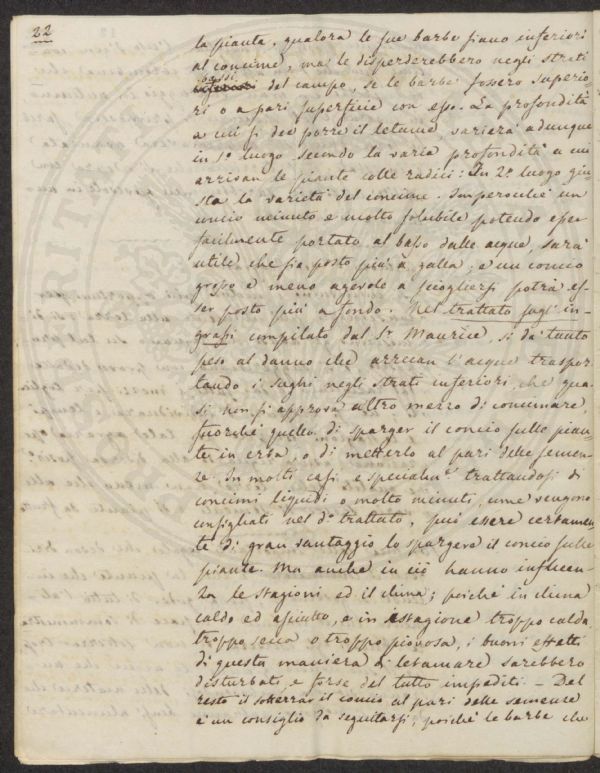 22
la pianta, qualora le sue barbe siano inferiori
al concime, ma le disperderebbero negli strati
bassi
del campo, se le barbe fossero superio-
ri o a pari superficie con esso. La profondità
a cui si dee porre il letame varierà adunque
in 1º luogo secondo la varia profondità a cui
arrivan le piante colle radici: In 2º luogo giu-
sta la varietà del concime. Imperocchè un
concio minuto e molto solubile potendo esser
facilmente portato al basso dalle acque, sarà
utile che sia posto più a galla; e un concio
grosso e meno agevole a sciogliersi potrà es-
ser posto più a fondo. Nel trattato sugl'in-
grassi compilato dal Sr Maurice, si dà tanto
peso al danno che arrecan l'acque traspor-
tando i sughi negli strati inferiori, che qua-
si non si approva altro mezzo di concimare,
fuorchè quello di sparger il concio sulle pian-
te in erba, o di metterlo al pari delle semen-
ze. In molti casi, e specialmte trattandosi di
concimi liquidi o molto minuti, come vengono
consigliati nel do trattato, può essere certamen-
te di gran vantaggio lo spargere il concio sulle
piante. Ma anche in ciò hanno influen-
za le stagioni ed il clima; poichè in clima
caldo ed asciutto, e in stagione troppo calda
troppo secca o troppo piovosa, i buoni effetti
di questa maniera di letamare sarebbero
disturbati, e forse del tutto impediti. - Del
resto il sotterrar il concio al pari delle semenze
è un consiglio da seguitarsi; poichè le barbe che